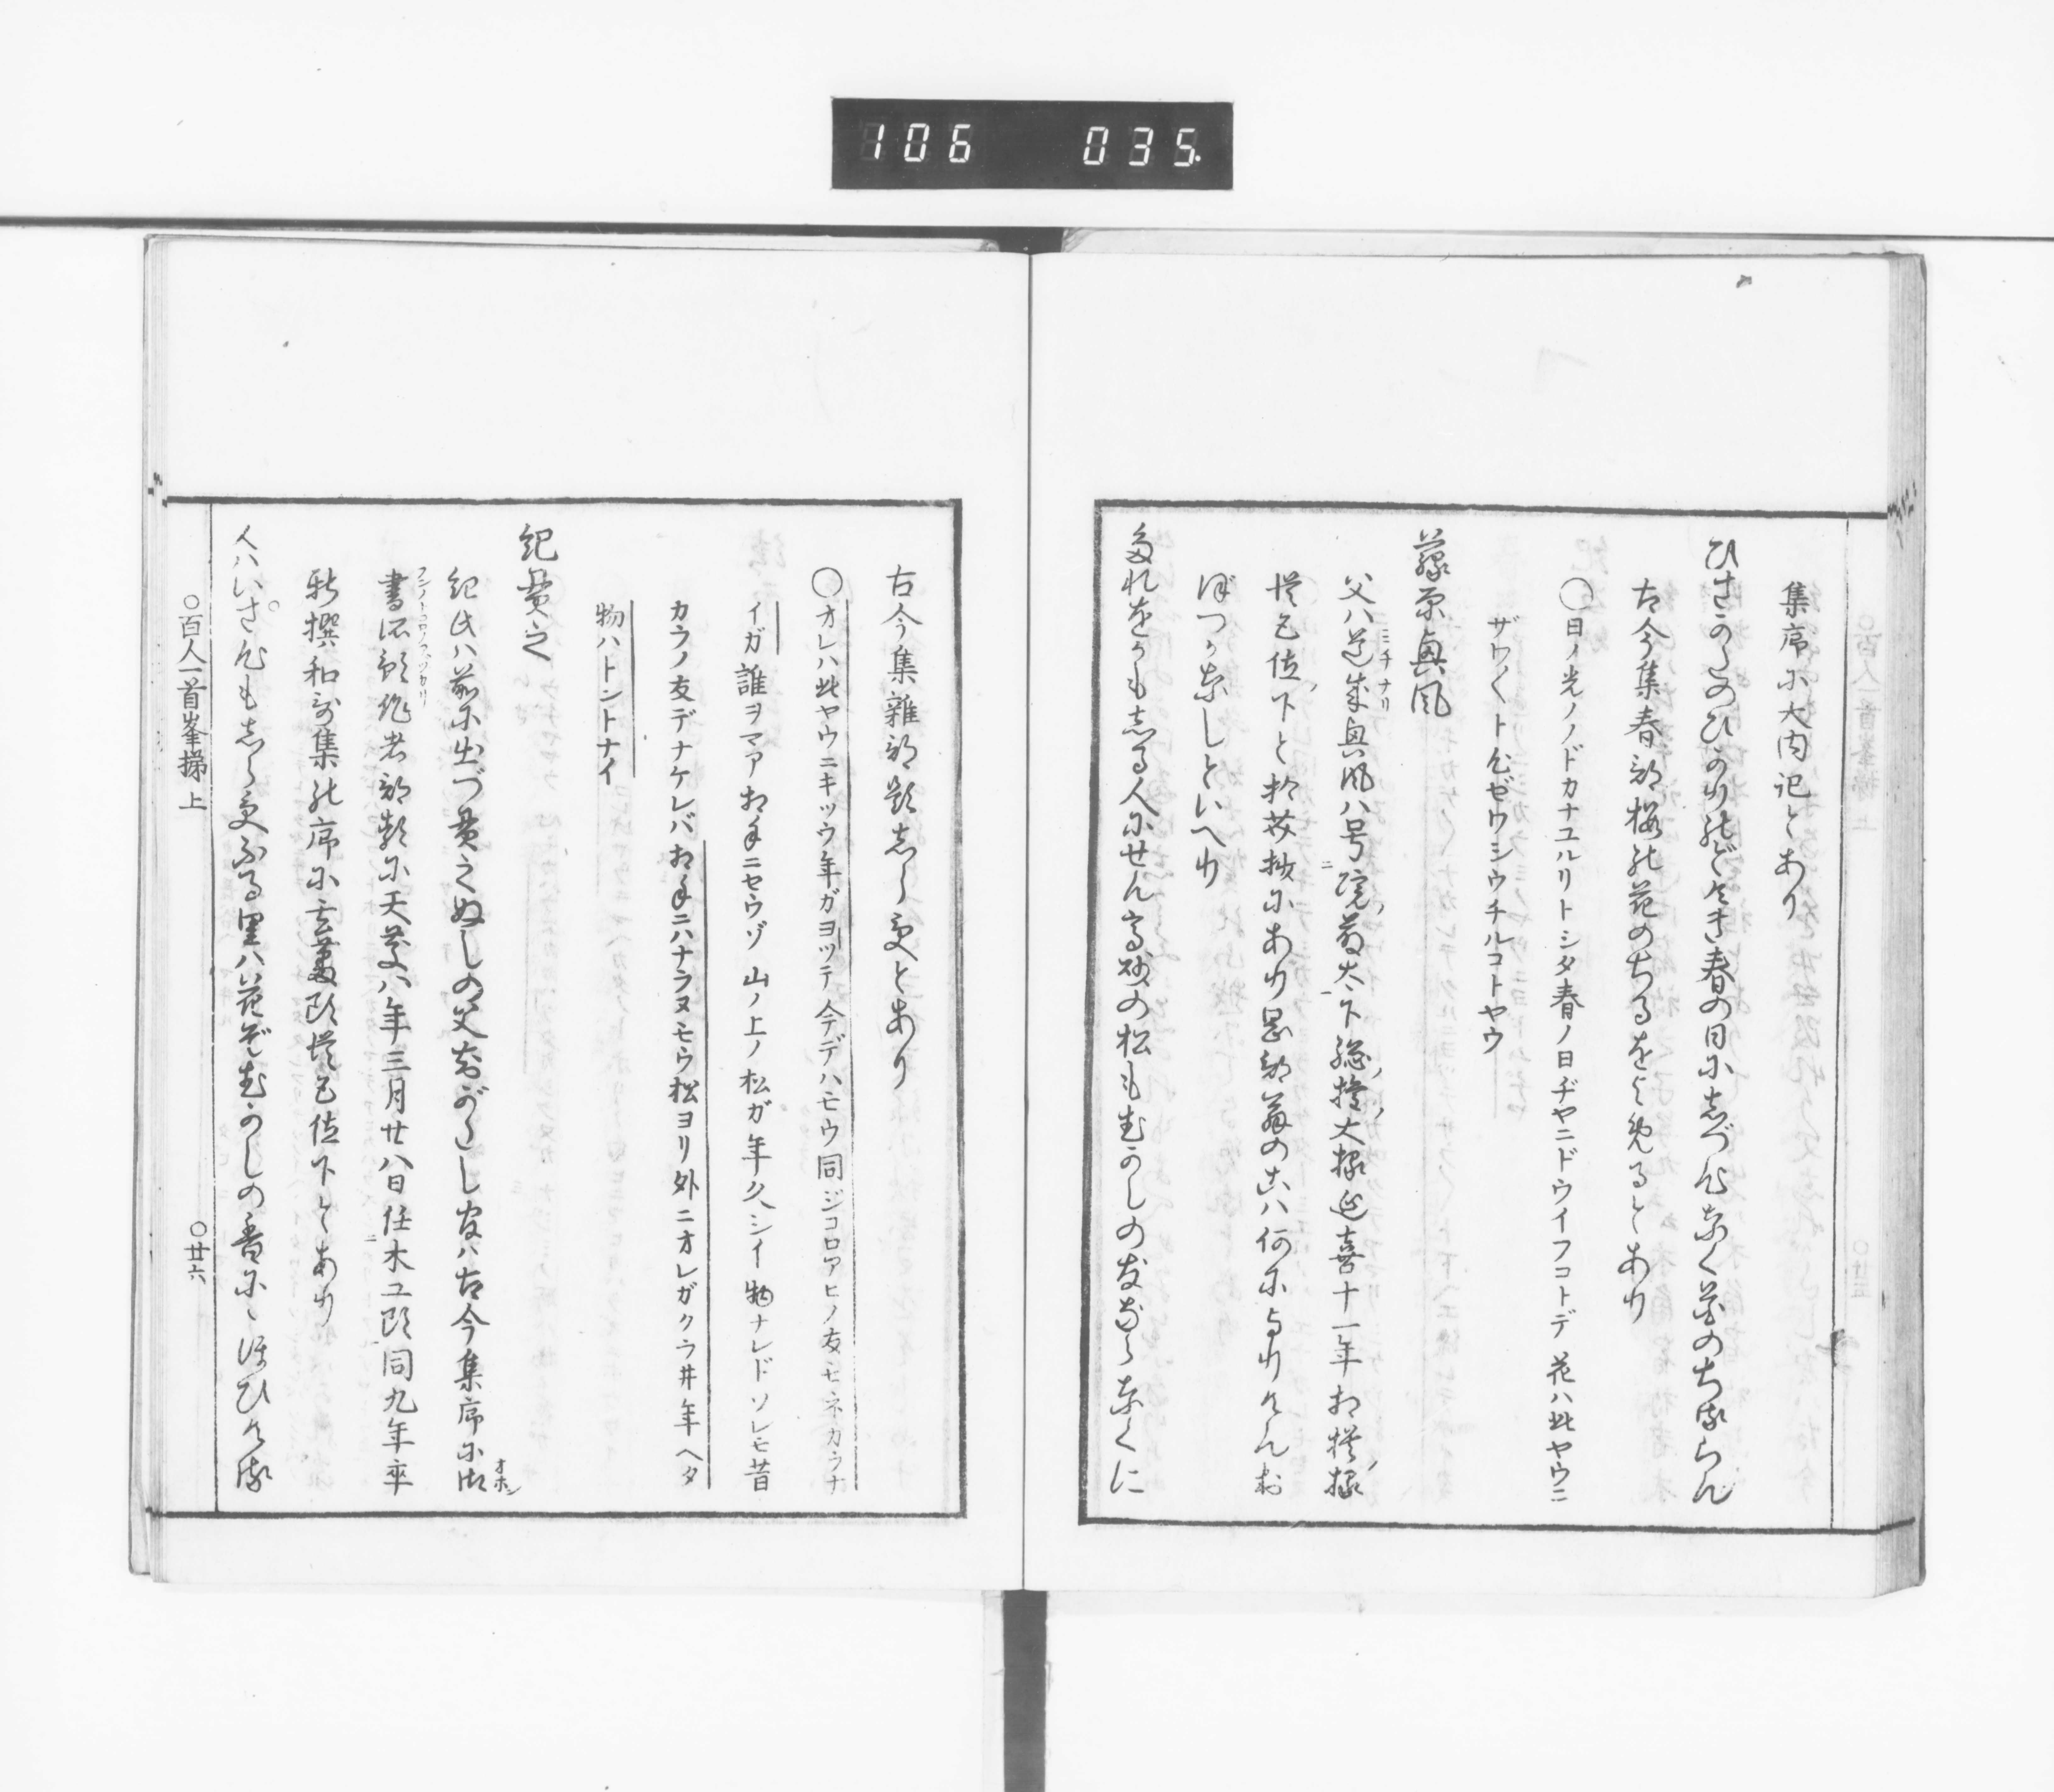 106 035
集序に大内記とあり
ひさかたのひかりのどけき春の日にしづ心なく花のちるらん
古今集春部桜の花のちるをよめるとあり
○日ノ光ノノドカナユルリトシタ春ノ日ヂヤニドウイフコトデ花ハ此ヤウニ
ザワ〱ト心ゼワシウチルコトヤウ
藤原興風
父ハ道成興風ハ号院藤太下総権大掾延喜十一年相模掾
従五位下と
ぼつかなしといへり
たれをかもしる人にせん高砂の松もむかしの友ならなくに
古今集雑部題しらずとあり
○オレハ此ヤウニキツウ年ガヨツテ今デハモウ同ジコロアヒノ友モネカラナ
イガ誰ヲマア相手ニセウゾ山ノ上ノ松ガ年久シイ物ナレドソレモ昔
カラノ友デナケレバ相手ニハナラヌモウ松ヨリ外ニオレガクラ井年ヘタ
物ハトントナイ
紀貫之
紀氏ハ前に出づ貫之ぬしの父おぼつかなし官ハ古今集序に御
書所預作者部類に天慶八年三月廿八日任木工頭同九年卒
新撰和歌集の序に玄蕃頭従五位下とあり
人ハいさ心もしらずふる里ハ花ぞむかしの香ににほひける
○百人一首峯梯 上
○廿六